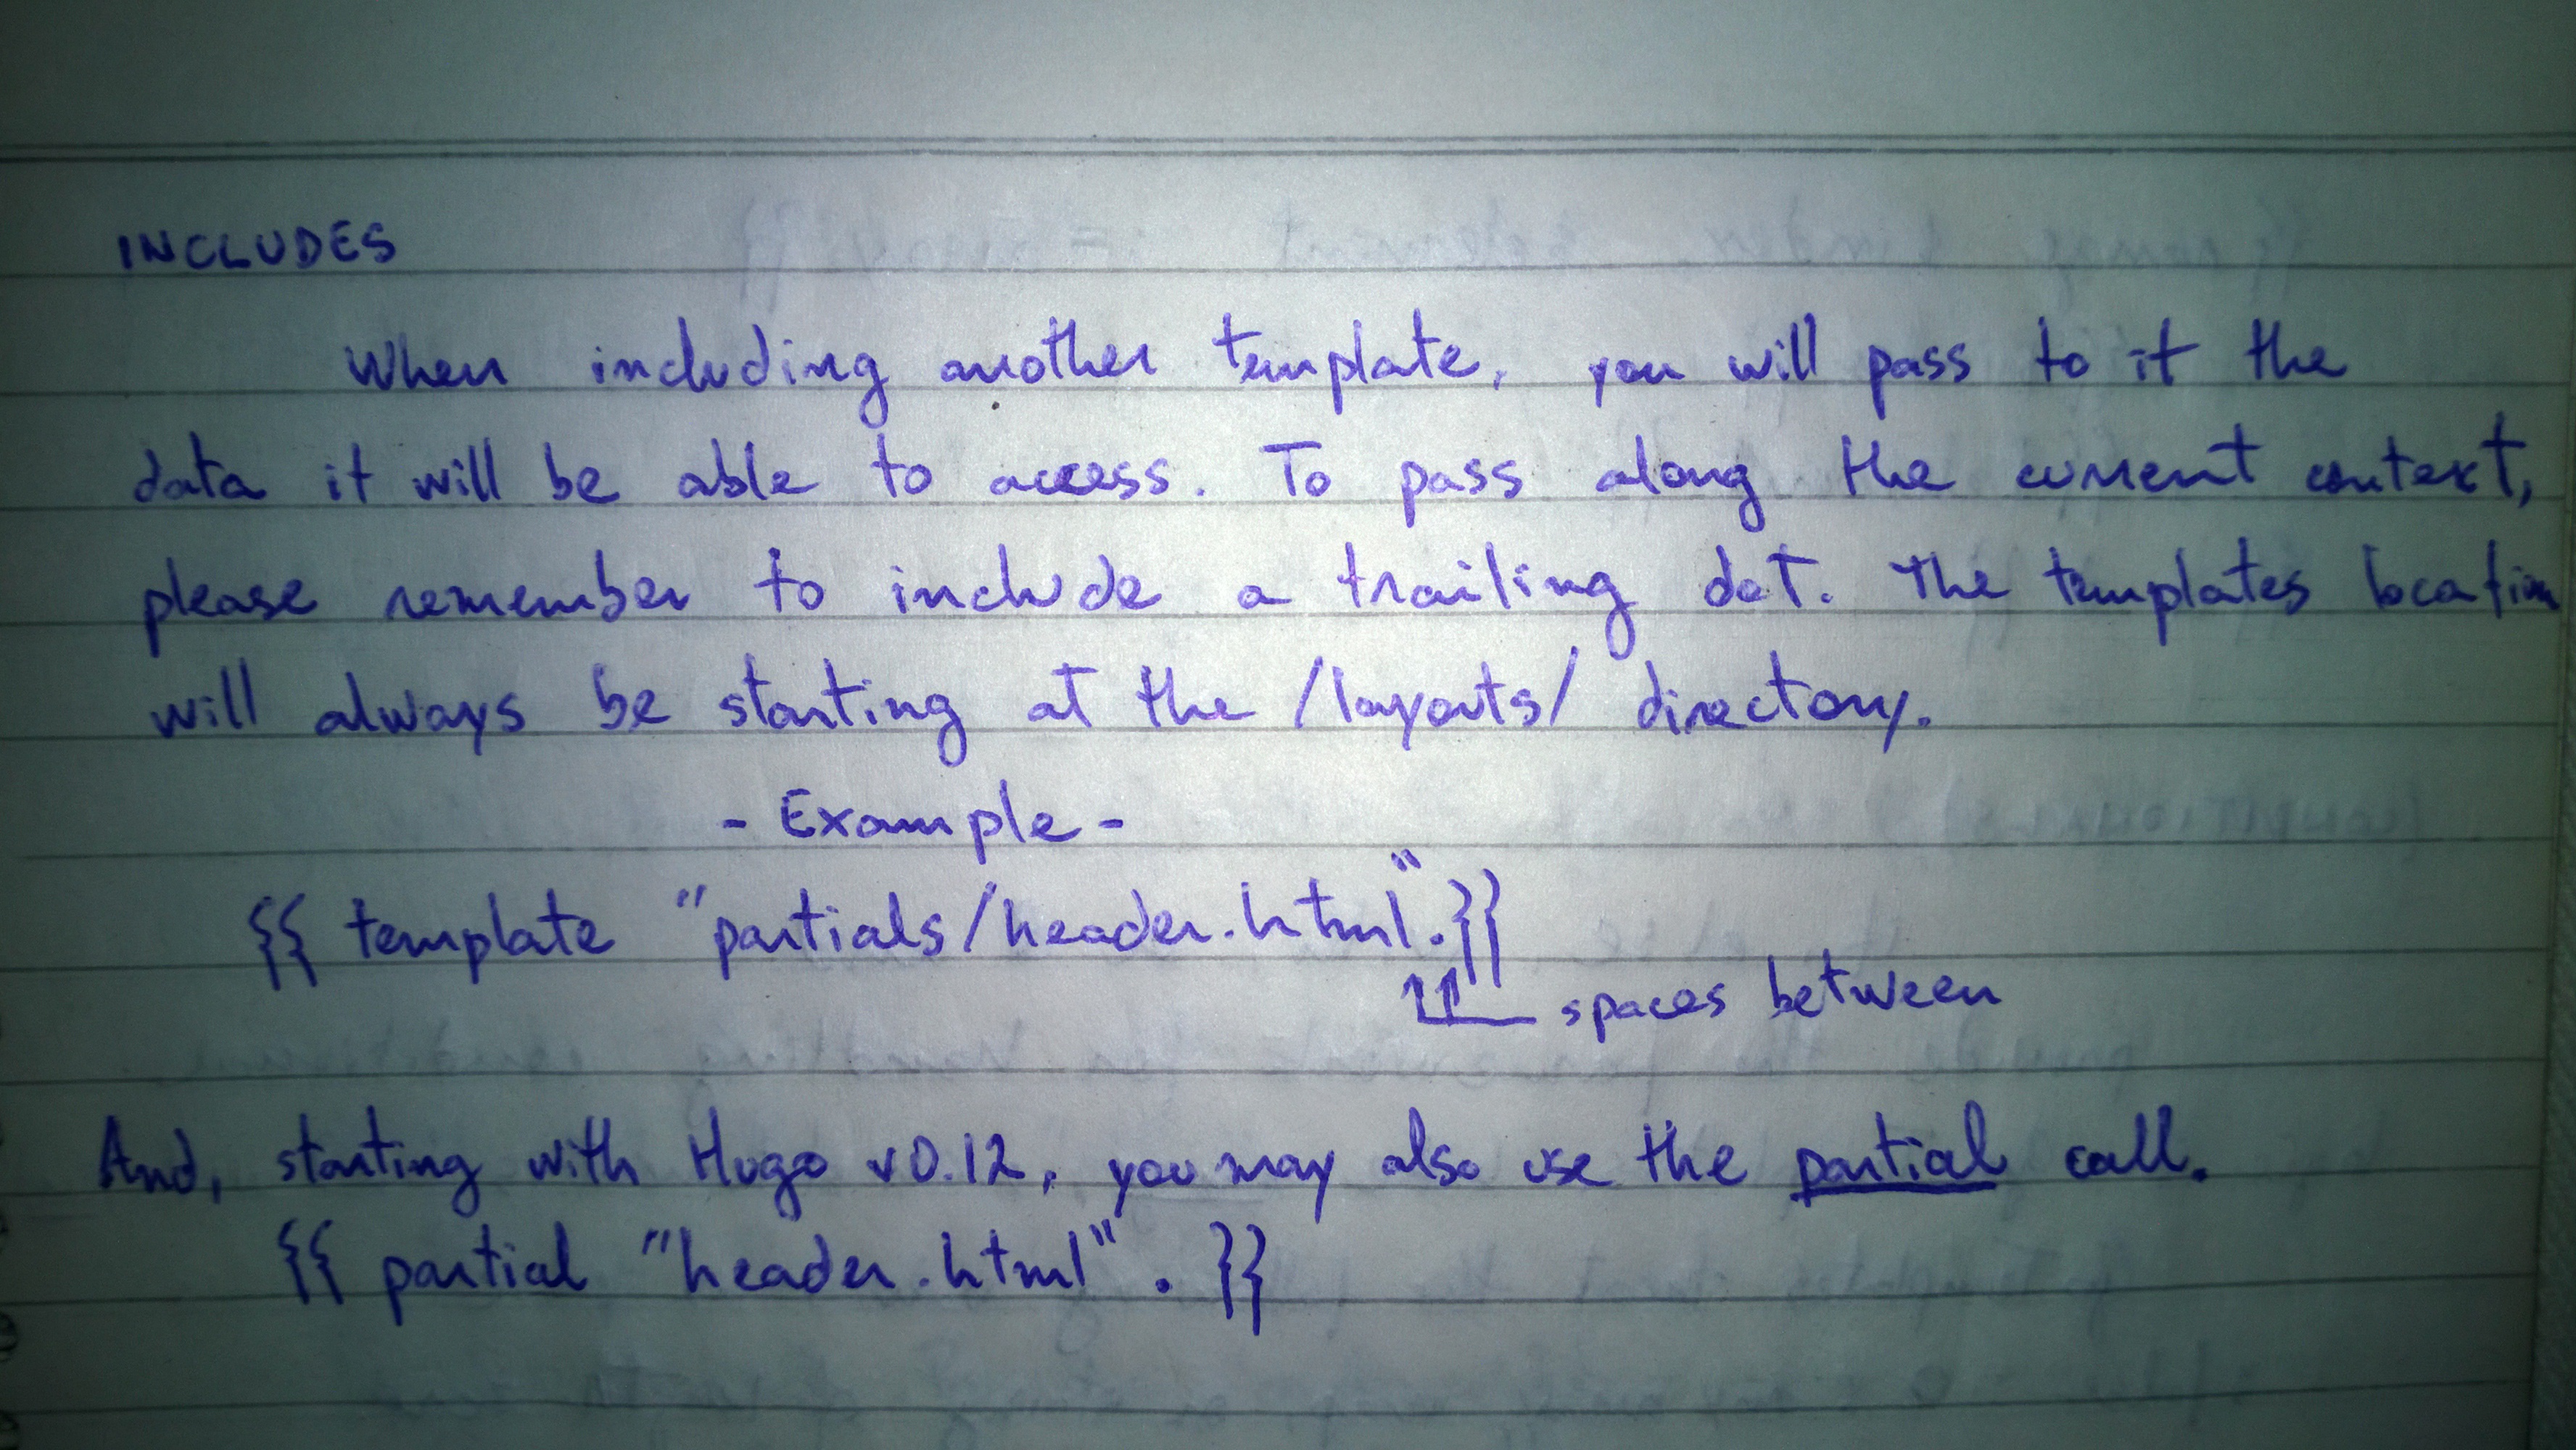 INCLUDES
When including another template, you will pass to it the
data it will be able to access. To pass along the current context,
please remember to include a trailing dot. The templates location
will always be starting at the /layouts/ directory.
- Example -
{{ template "partials/header.html".}}
spaces between
And, starting with Hugo v0.12, you may also use the partial call.
{{ partial "header.html" . }}